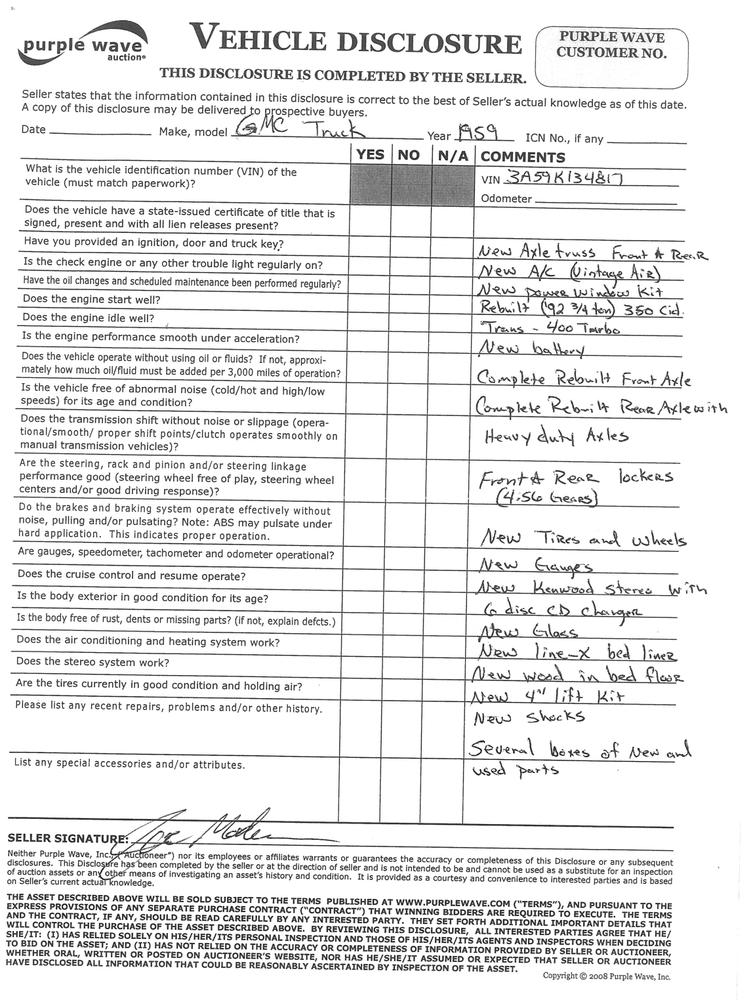 purple wave
auction®
VEHICLE DISCLOSURE
PURPLE WAVE
CUSTOMER NO.
THIS DISCLOSURE IS COMPLETED BY THE SELLER.
Seller states that the information contained in this disclosure is correct to the best of Seller's actual knowledge as of this date.
A copy of this disclosure may be delivered to prospective buyers.
Date Make, model GMC Truck Year 1959 ICN No., if any
YES NO N/A COMMENTS
What is the vehicle identification number (VIN) of the
vehicle (must match paperwork)?
VIN 3A59K134817
Odometer
Does the vehicle have a state-issued certificate of title that is
signed, present and with all lien releases present?
Have you provided an ignition, door and truck key?
New Axle truss Front & Rear
Is the check engine or any other trouble light regularly on?
New A/C (Vintage Air)
Have the oil changes and scheduled maintenance been performed regularly?
New power window Kit
Does the engine start well?
Rebuilt ('92 3/4 ton) 350 Cid.
Does the engine idle well?
Trans - 400 Turbo
Is the engine performance smooth under acceleration?
New battery
Does the vehicle operate without using oil or fluids? If not, approxi-
mately how much oil/fluid must be added per 3,000 miles of operation?
Complete Rebuilt Front Axle
Is the vehicle free of abnormal noise (cold/hot and high/low
speeds) for its age and condition?
Complete Rebuilt Rear Axle with
Does the transmission shift without noise or slippage (opera-
tional/smooth/ proper shift points/clutch operates smoothly on
manual transmission vehicles)?
Heavy duty Axles
Are the steering, rack and pinion and/or steering linkage
performance good (steering wheel free of play, steering wheel
centers and/or good driving response)?
Front & Rear lockers
(4.56 Gears)
Do the brakes and braking system operate effectively without
noise, pulling and/or pulsating? Note: ABS may pulsate under
hard application. This indicates proper operation.
New Tires and wheels
Are gauges, speedometer, tachometer and odometer operational?
New Gauges
Does the cruise control and resume operate?
New Kenwood stereo with
Is the body exterior in good condition for its age?
6 disc CD changer
Is the body free of rust, dents or missing parts? (if not, explain defcts.)
New Glass
Does the air conditioning and heating system work?
New line-x bed liner
Does the stereo system work?
New wood in bed floor
Are the tires currently in good condition and holding air?
New 4" lift Kit
Please list any recent repairs, problems and/or other history.
New Shocks
Several boxes of New and
List any special accessories and/or attributes.
used parts
SELLER SIGNATURE:
Neither Purple Wave, Inc. ("Auctioneer") nor its employees or affiliates warrants or guarantees the accuracy or completeness of this Disclosure or any subsequent
disclosures. This Disclosure has been completed by the seller or at the direction of seller and is not intended to be and cannot be used as a substitute for an inspection
of auction assets or any other means of investigating an asset's history and condition. It is provided as a courtesy and convenience to interested parties and is based
on Seller's current actual knowledge.
THE ASSET DESCRIBED ABOVE WILL BE SOLD SUBJECT TO THE TERMS PUBLISHED AT WWW.PURPLEWAVE.COM ("TERMS"), AND PURSUANT TO THE
EXPRESS PROVISIONS OF ANY SEPARATE PURCHASE CONTRACT ("CONTRACT") THAT WINNING BIDDERS ARE REQUIRED TO EXECUTE. THE TERMS
AND THE CONTRACT, IF ANY, SHOULD BE READ CAREFULLY BY ANY INTERESTED PARTY. THEY SET FORTH ADDITIONAL IMPORTANT DETAILS THAT
WILL CONTROL THE PURCHASE OF THE ASSET DESCRIBED ABOVE. BY REVIEWING THIS DISCLOSURE, ALL INTERESTED PARTIES AGREE THAT HE/
SHE/IT: (I) HAS RELIED SOLELY ON HIS/HER/ITS PERSONAL INSPECTION AND THOSE OF HIS/HER/ITS AGENTS AND INSPECTORS WHEN DECIDING
TO BID ON THE ASSET; AND (II) HAS NOT RELIED ON THE ACCURACY OR COMPLETENESS OF INFORMATION PROVIDED BY SELLER OR AUCTIONEER,
WHETHER ORAL, WRITTEN OR POSTED ON AUCTIONEER'S WEBSITE, NOR HAS HE/SHE/IT ASSUMED OR EXPECTED THAT SELLER OR AUCTIONEER
HAVE DISCLOSED ALL INFORMATION THAT COULD BE REASONABLY ASCERTAINED BY INSPECTION OF THE ASSET.
Copyright © 2008 Purple Wave, Inc.